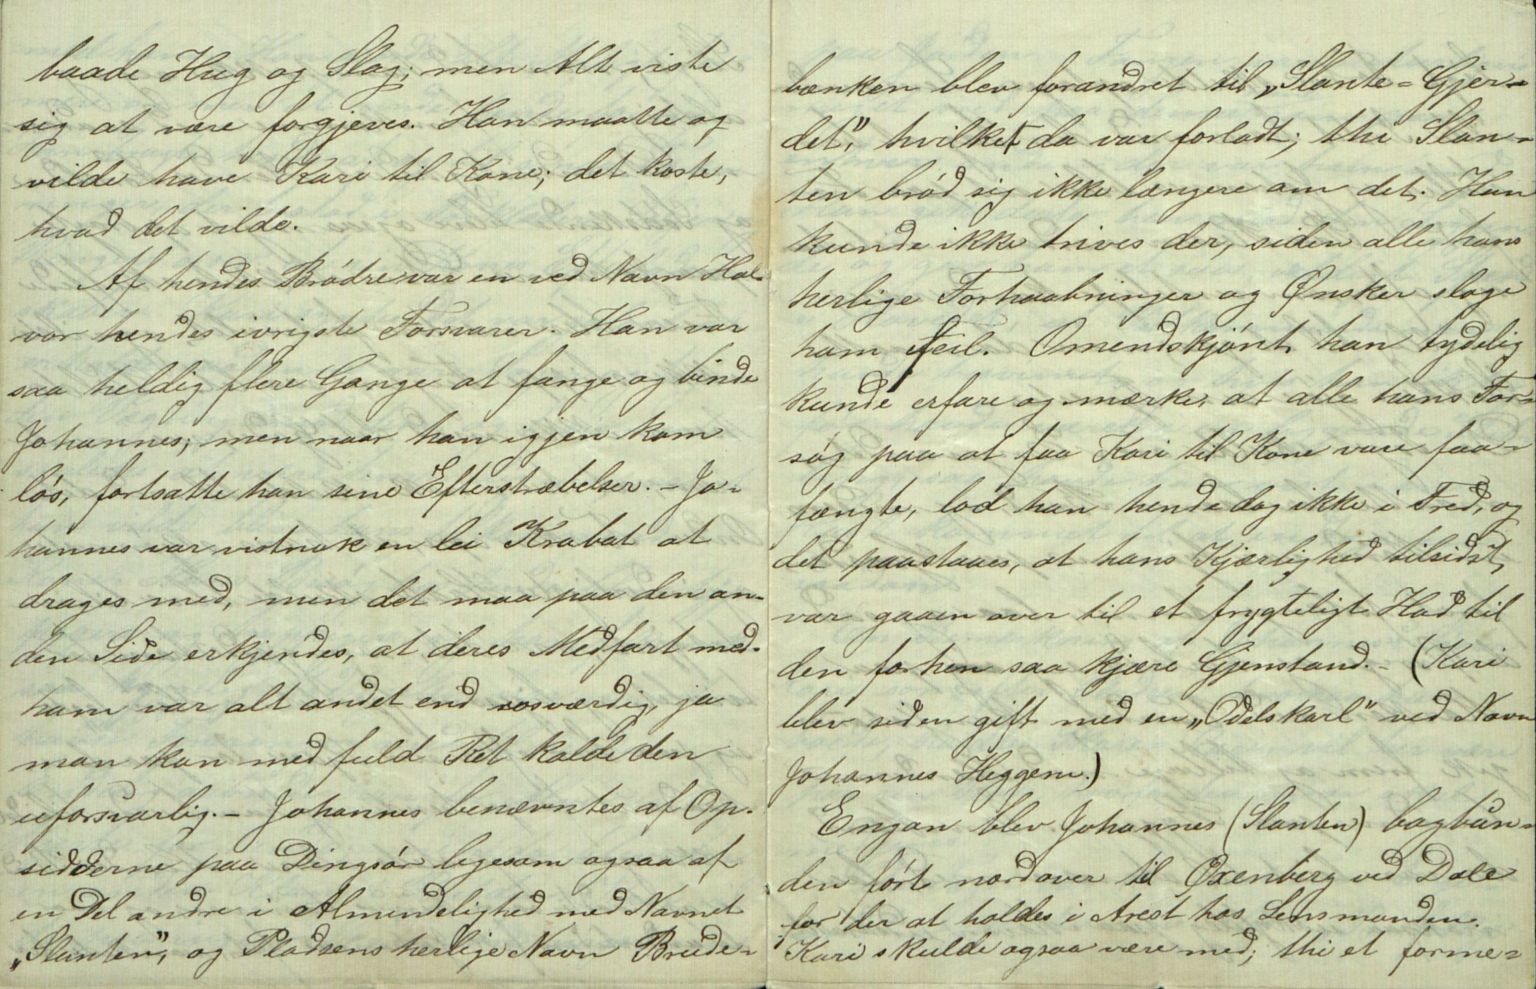 baade Hug og Slag; men Alt viste
sig at være forgjeves. Han maatte og
vilde have Kari til Kone; det koste,
hvad det vilde.
Af hendes Brødre var en ved Navn Hal-
vor hendes ivrigste Forsvarer. Han var
saa heldig flere Gange at fange og binde
Johannes; men naar han igjen kom
løs, fortsatte han sine Efterstræbelser. – Jo-
hannes var vistnok en lei Krabat at
drages med, men det maa paa den an-
den Side erkjendes, at deres Medfart med
ham var alt andet end rosværdig, ja
man kan med fuld Ret kalde den
uforsvarlig. – Johannes benævntes af Op-
sidderne paa Dingsør ligesom ogsaa af
en Del andre i Almindelighed med Navnet
„Slanten”, og Pladsens herlige Navn Brude-
bænken blev forandret til „Slante-Gjer-
det”, hvilket da var forladt; thi Slan-
ten brød sig ikke længere om det. Han
kunde ikke trives der, siden alle hans
herlige Forhaabninger og Ønsker sloge
ham feil. Omendskjønt han tydelig
kunde erfare og mærke, at alle hans For-
søg paa at faa Kari til Kone vare faa-
fængte, lod han hende dog ikke i Fred, og
det paastaaes, at hans Kjærlighed tilsidst
var gaaen over til et frygteligt Had til
den forhen saa kjære Gjenstand. – (Kari
blev siden gift med en „Odelskarl” ved Navn
Johannes Heggem.)
Engan blev Johannes (Slanten) bagbun-
den ført nordover til Oxenberg ved Dale
for der at holdes i Arest hos Lensmanden.
Kari skulde ogsaa være med; thi et forme-